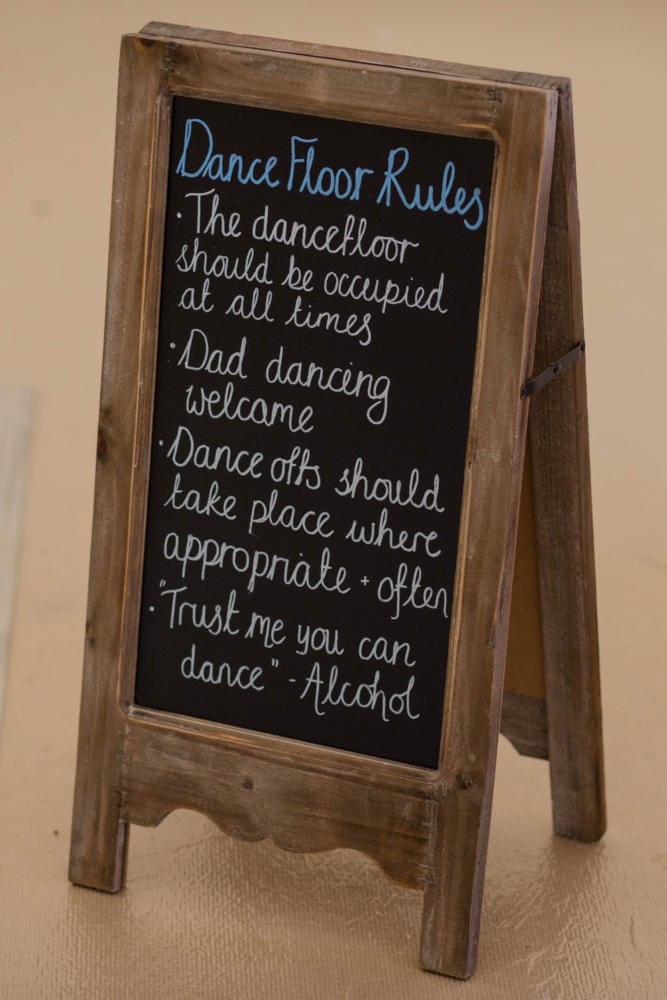 Dance Floor Rules
· The dancefloor
should be occupied
at all times
· Dad dancing
welcome
· Dance offs should
take place where
appropriate + often
· "Trust me you can
dance" - Alcohol